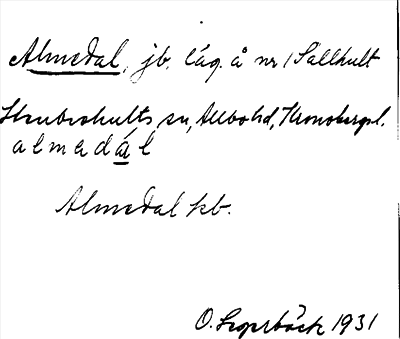 Almedal, jb. läg. å nr 1 Sällhult
Stenbrohults sn, Allbo hd, Kronobergs l.
almedál
Almedal kb.
1931